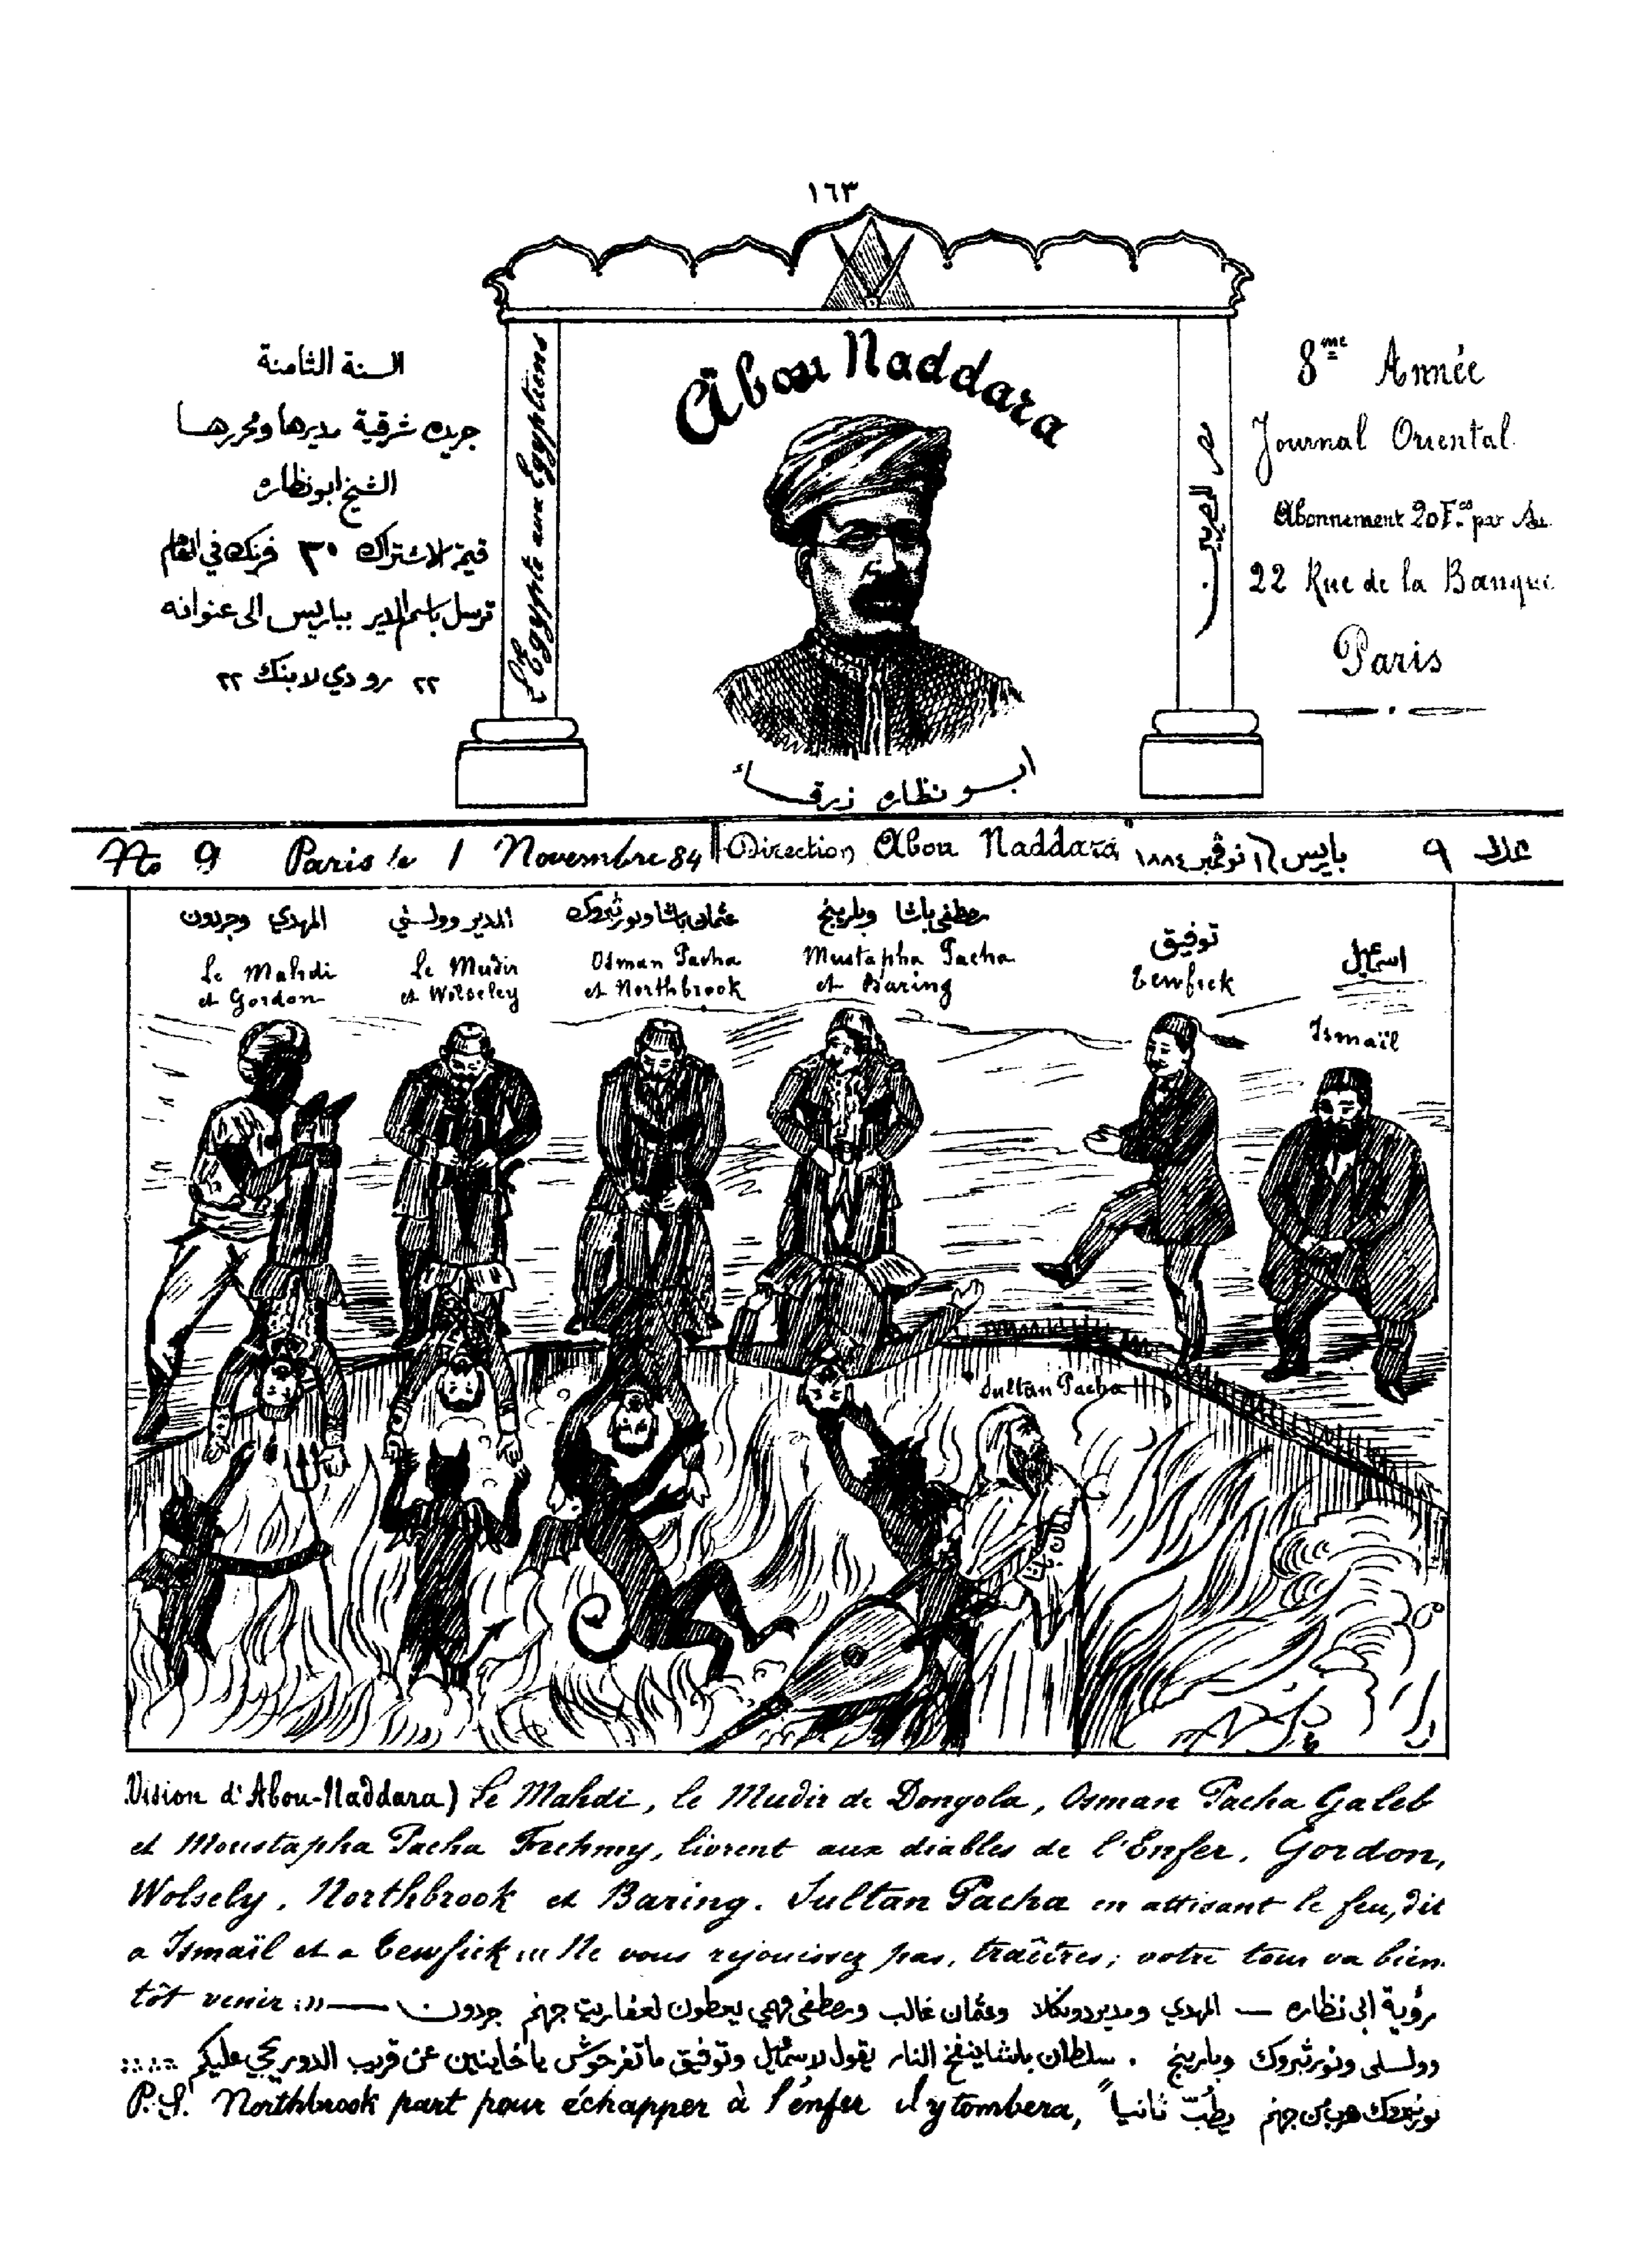 ١٦٣
Abou Naddara
السنة الثامنة
جريدة شرقية مديرها ومحررها
الشيخ ابو نظاره
قيمة الاشتراك ٣٠ فرنك في العام
ترسل باسم المدير بباريس الى عنوانه
٢٢ رو دي لابنك ٢٢
L'Egypte aux Egyptiens
مصر للمصريين
8me Année
Journal Oriental
Abonnement 20 F.cs par An
22 Rue de la Banque
Paris
ابو نظاره زرقا
No 9 Paris le 1 Novembre 84 Direction Abou Naddara باريس ١ نوفمبر ١٨٨٤ عدد ٩
المهدي وجردون
Le Mahdi
et Gordon
المدير وولسلي
Le Mudir
et Wolseley
عثمان باشا ونورثبروك
Osman Pacha
et Northbrook
مصطفى باشا وبارينج
Mustapha Pacha
et Baring
توفيق
Tewfick
اسمعيل
Ismaïl
Sultan Pacha
Vision d'Abou-Naddara) Le Mahdi, le Mudir de Dongola, Osman Pacha Galeb
et Moustapha Pacha Fechmy, livrent aux diables de l'Enfer, Gordon,
Wolsely, Northbrook et Baring. Sultan Pacha en attisant le feu, dit
a Ismaïl et a Tewfick «« Ne vous rejouissez pas, traîtres; votre tour va bien-
tôt venir :»» — رؤية ابي نظاره — المهدي ومدير دونكلا وعثمان غالب ومصطفى فهمي يعطون لعفاريت جهنم جردون
وولسلي ونورثبروك وبارينج . سلطان باشا ينفخ النار يقول لاسمعيل وتوفيق ما تفرحوش يا خاينين عن قريب الدور يجي عليكم
P.S. Northbrook part pour échapper à l'enfer il y tombera, نورثبروك هرب من جهنم يطبّ ثانياً